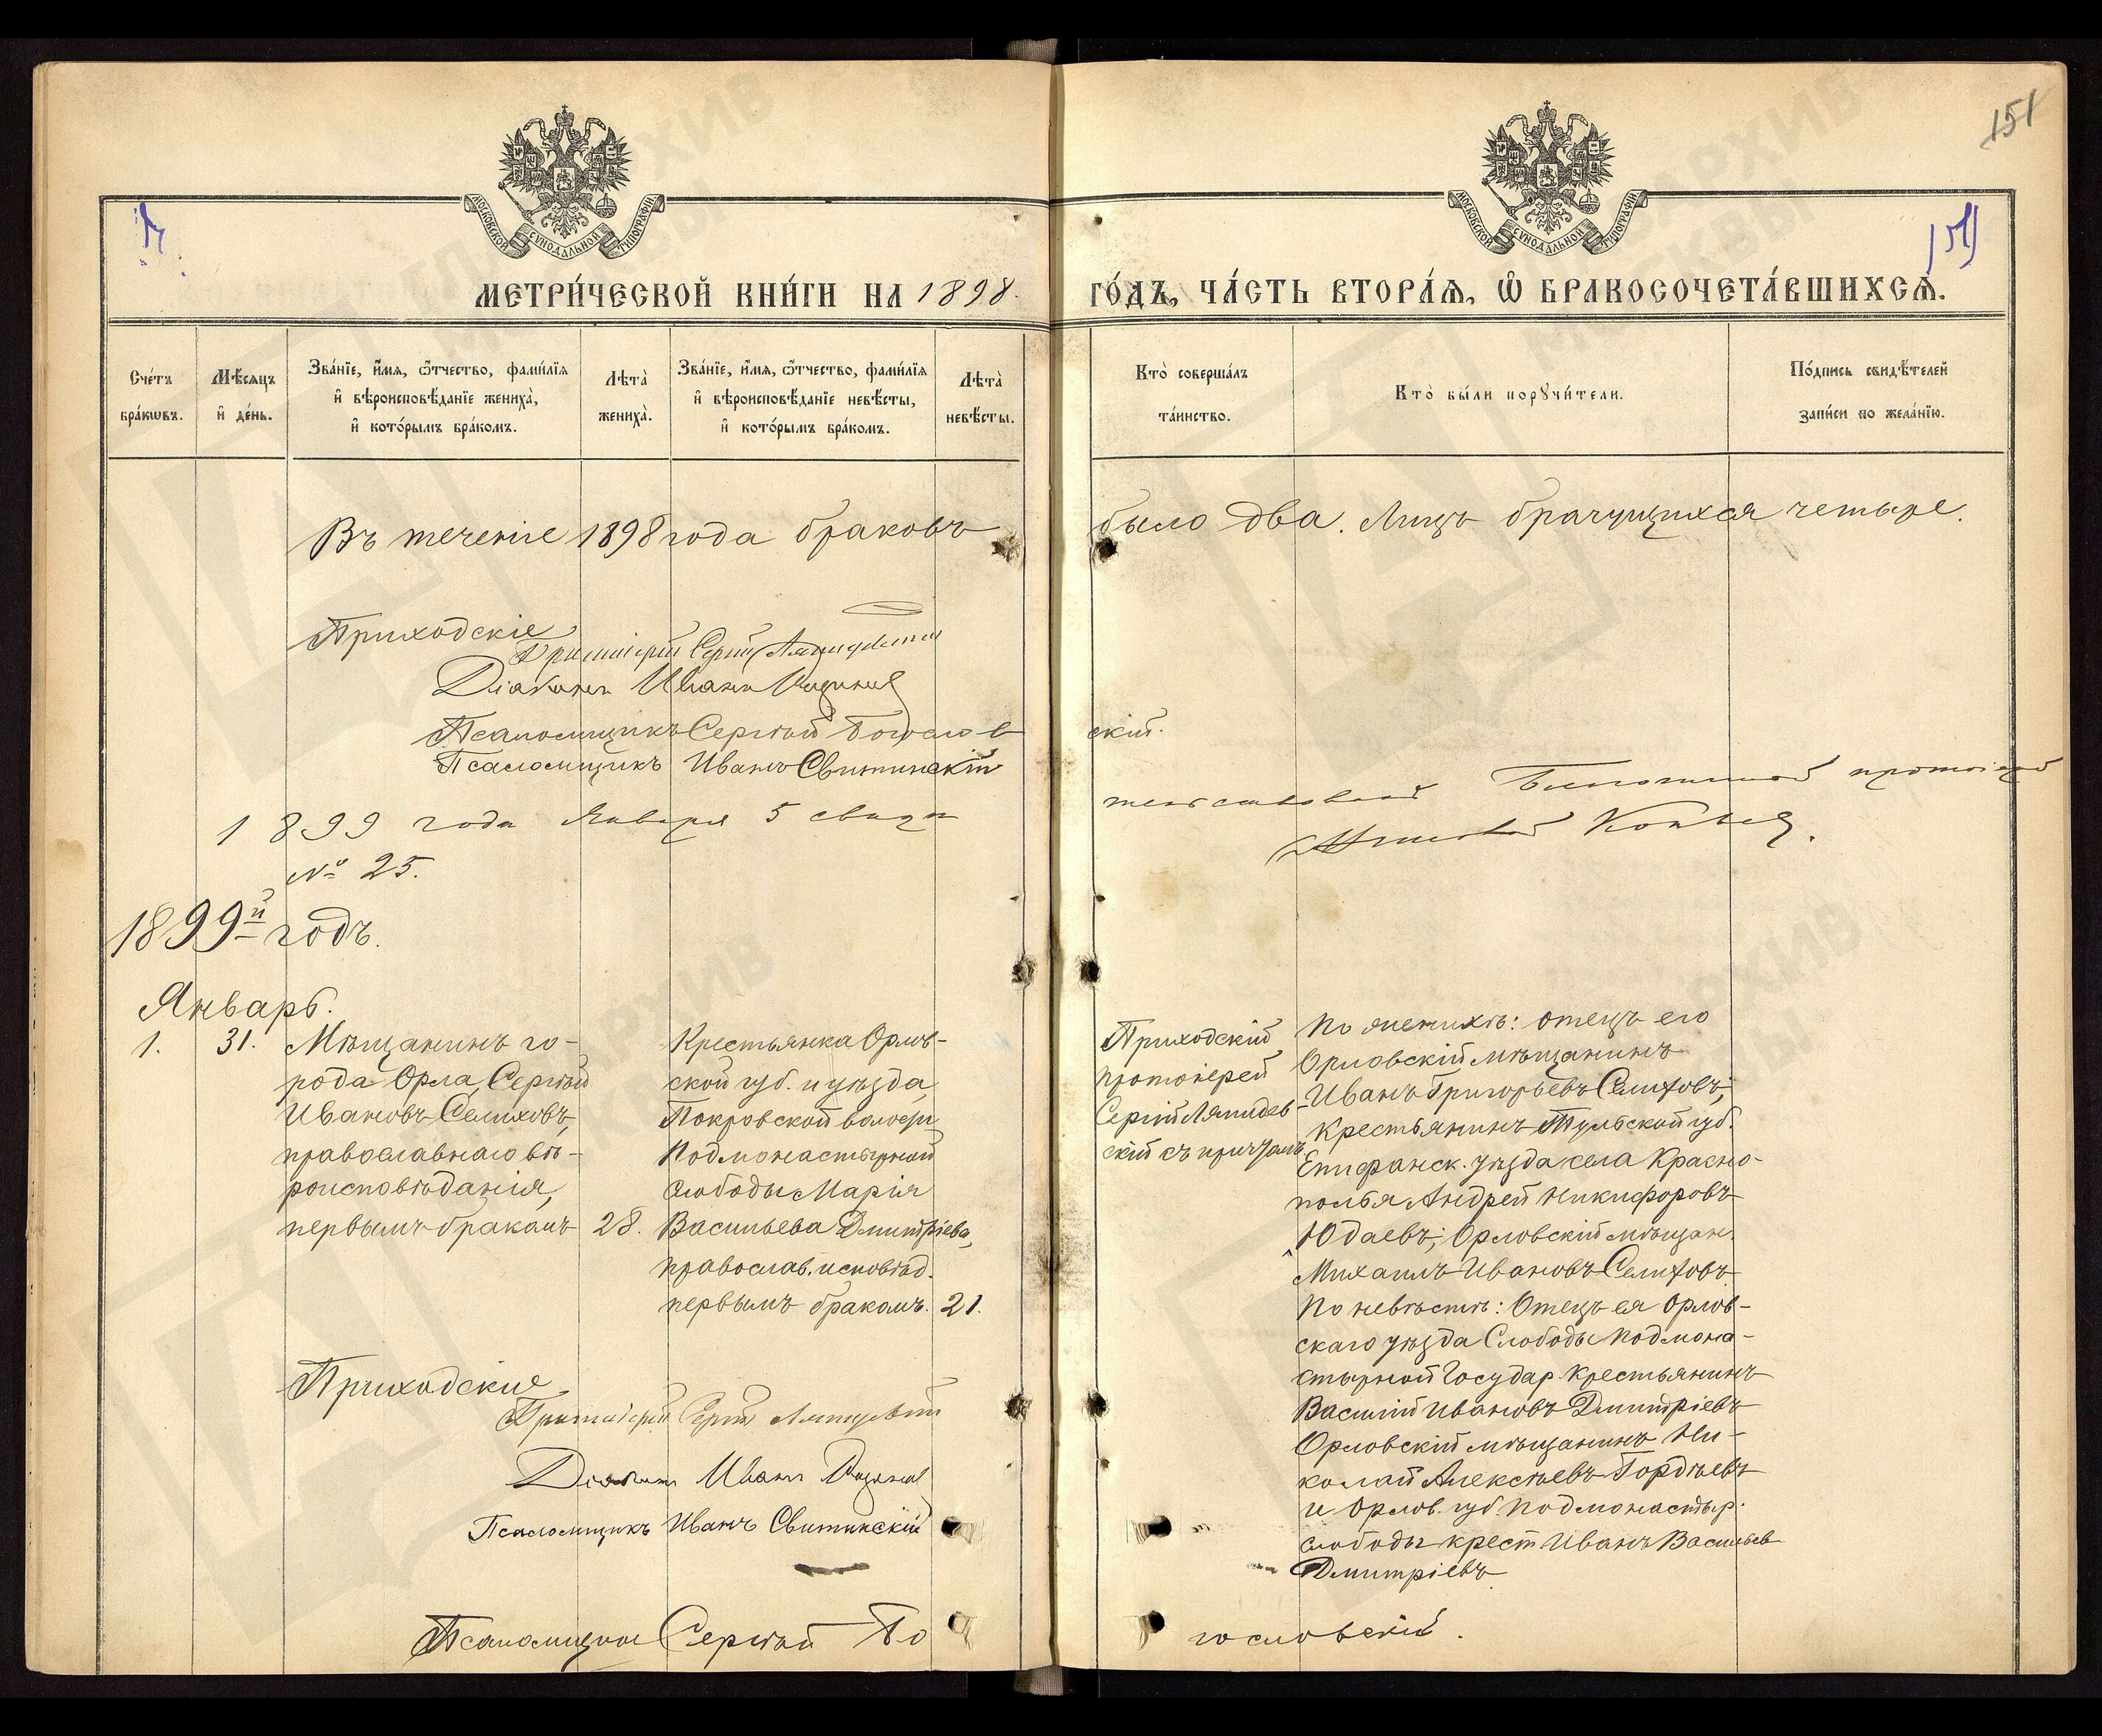 151
МОСКОВСКОЙ СѴНОДАЛЬНОЙ ТИПОГРАФІИ
МОСКОВСКОЙ СѴНОДАЛЬНОЙ ТИПОГРАФІИ
151
МЕТРИ́ЧЕСКОЙ КНИ́ГИ НА 1898.
ГО́ДЪ, ЧА́СТЬ ВТОРА́Ѧ, Ѽ БРАКОСОЧЕТА́ВШИХСѦ.
Сче́тъ бра́кωвъ.
Мѣ́сѧцъ и҆ де́нь.
Зва́нїе, и҆́мѧ, ѻ҆́тчество, фами́лїѧ и҆ вѣроисповѣ́данїе жениха̀, и҆ кото́рымъ бра́комъ.
Лѣта̀ жениха̀.
Зва́нїе, и҆́мѧ, ѻ҆́тчество, фами́лїѧ и҆ вѣроисповѣ́данїе невѣ́сты, и҆ кото́рымъ бра́комъ.
Лѣта̀ невѣ́сты.
Кто̀ соверша́лъ та́инство.
Кто̀ бы́ли порꙋчи́тели.
По́дпись свидѣ́телей за́писи по жела́нїю.
Въ теченіе 1898 года браковъ
было два. Лицъ брачущихся четыре.
Приходскіе
Протоіерей Сергій Ляпидевскій
Діаконъ Иванъ
Псаломщикъ Сергѣй Богослов
скій.
Псаломщикъ Иванъ Свитинскій
1899 года Января 5 свидѣ
тельствовалъ Благочинный протоіерей
№ 25.
1899й годъ.
Январь.
1. 31.
Мѣщанинъ го-
рода Орла, Сергѣй
Ивановъ Селиховъ,
православнаго вѣ-
роисповѣданія,
первымъ бракомъ 28.
Крестьянка Орлов-
ской губ. и уѣзда,
Покровской волости
Подмонастырной
слободы Марія
Васильева Дмитріева,
православ. исповѣд.
первымъ бракомъ. 21.
Приходскій
протоіерей
Сергій Ляпидев-
скій съ причтомъ.
По женихѣ: отецъ его
Орловскій мѣщанинъ
Иванъ Григорьевъ Селиховъ,
крестьянинъ Тульской губ.
Епифанск. уѣзда села Красно-
полья Андрей Никифоровъ
Юдаевъ; Орловскій мѣщан.
Михаилъ Ивановъ Селиховъ
По невѣстѣ: Отецъ ея Орлов-
скаго уѣзда Слободы Подмона-
стырной Государ. крестьянинъ
Василій Ивановъ Дмитріевъ
Орловскій мѣщанинъ Ни-
колай Алексѣевъ Гордѣевъ
и Орлов. губ. Подмонастыр.
слободы крест Иванъ Васильев
Дмитріевъ
Приходскіе
Протоіерей Сергій Ляпидевскій
Діаконъ Иванъ
Псаломщикъ Иванъ Свитинскій
Псаломщикъ Сергѣй Бо
гословскій.